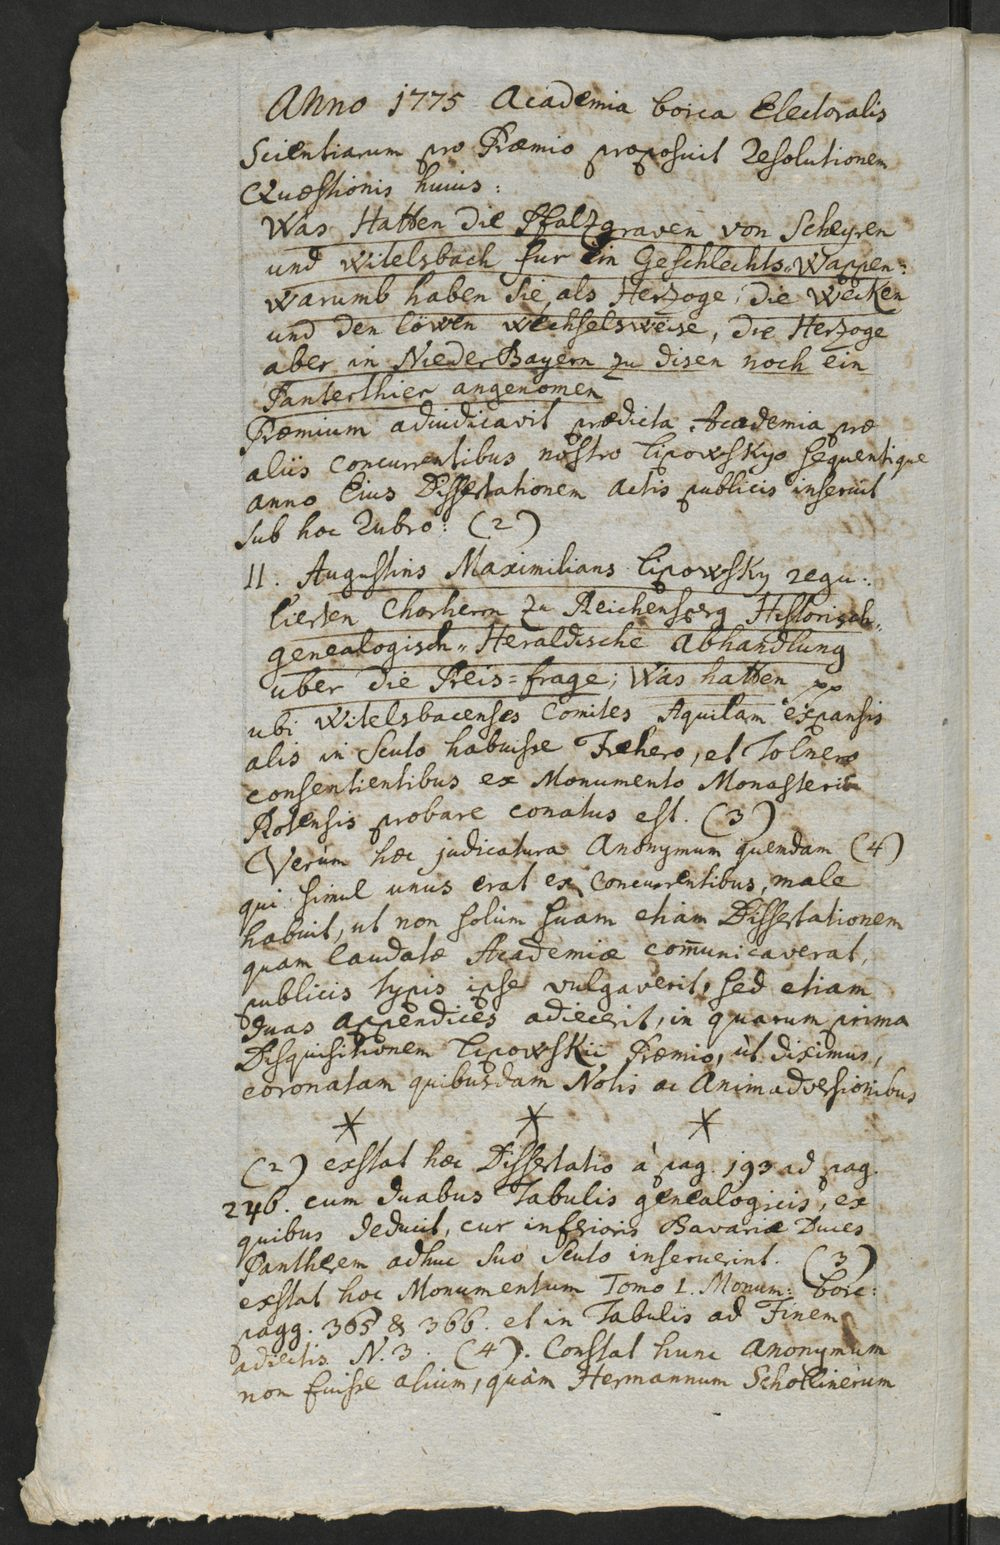 Anno 1775 Academia boica Electoralis
Scientiarum pro Præmio proposuit Resolutionem
Quæstionis huius:
Was Hatten die Pfalzgraven von Scheyren
und Witelsbach fur Ein Geschlechts-Wappen:
Warumb haben Sie als Herzoge, die Wecken
und den Löwen Wechselsweise, die Herzoge
aber in NiederBayern zu disen noch ein
Panterthier angenomen
Præmium adiudicavit prædicta Academia præ
aliis concurrentibus nostro Lipowskyo sequentique
anno Eius Dissertationem Actis publicis inseruit
sub hoc Rubro: (2)
II. Augustins Maximilians Lipowsky regu:
lierten Chorherrn zu Reichensperg Historisch-
genealogisch-Heraldische Abhandlung
uber die Preis=frage; Was hatten pp
ubi Witelsbacenses Comites Aquilam expansis
alis in Scuto habuisse Frehero, et Tolnero
consentientibus ex Monumento Monasterii
Rotensis probare conatus est. (3)
Verùm hæc judicatura Anonymum quemdam (4)
qui simul unus erat ex Concurrentibus, male
habuit, ut non solùm suam etiam Dissertationem
quam laudatæ Academiæ com̄unicaverat,
publicis typis ipse vulgaverit, sed etiam
duas appendices adiecerit, in quarum prima
Disquisitionem Lipowskii Præmio, ùt diximus,
coronatam quibusdam Notis ac Animadversionibus
* * *
(2) exstat hæc Dissertatio à pag. 193 ad pag.
246. cum duabus Tabulis genealogicis, ex
quibus deducit, cur inferioris Bavariæ Duces
Pantherem adhuc suo Scuto inseruerint. (3)
exstat hoc Monumentum Tomo I. Monum: boic:
pagg. 365 & 366. et in Tabulis ad Finem
adiectis N. 3. (4). Constat hunc Anonymum
non fuisse alium, quàm Hermannum Schollinerum